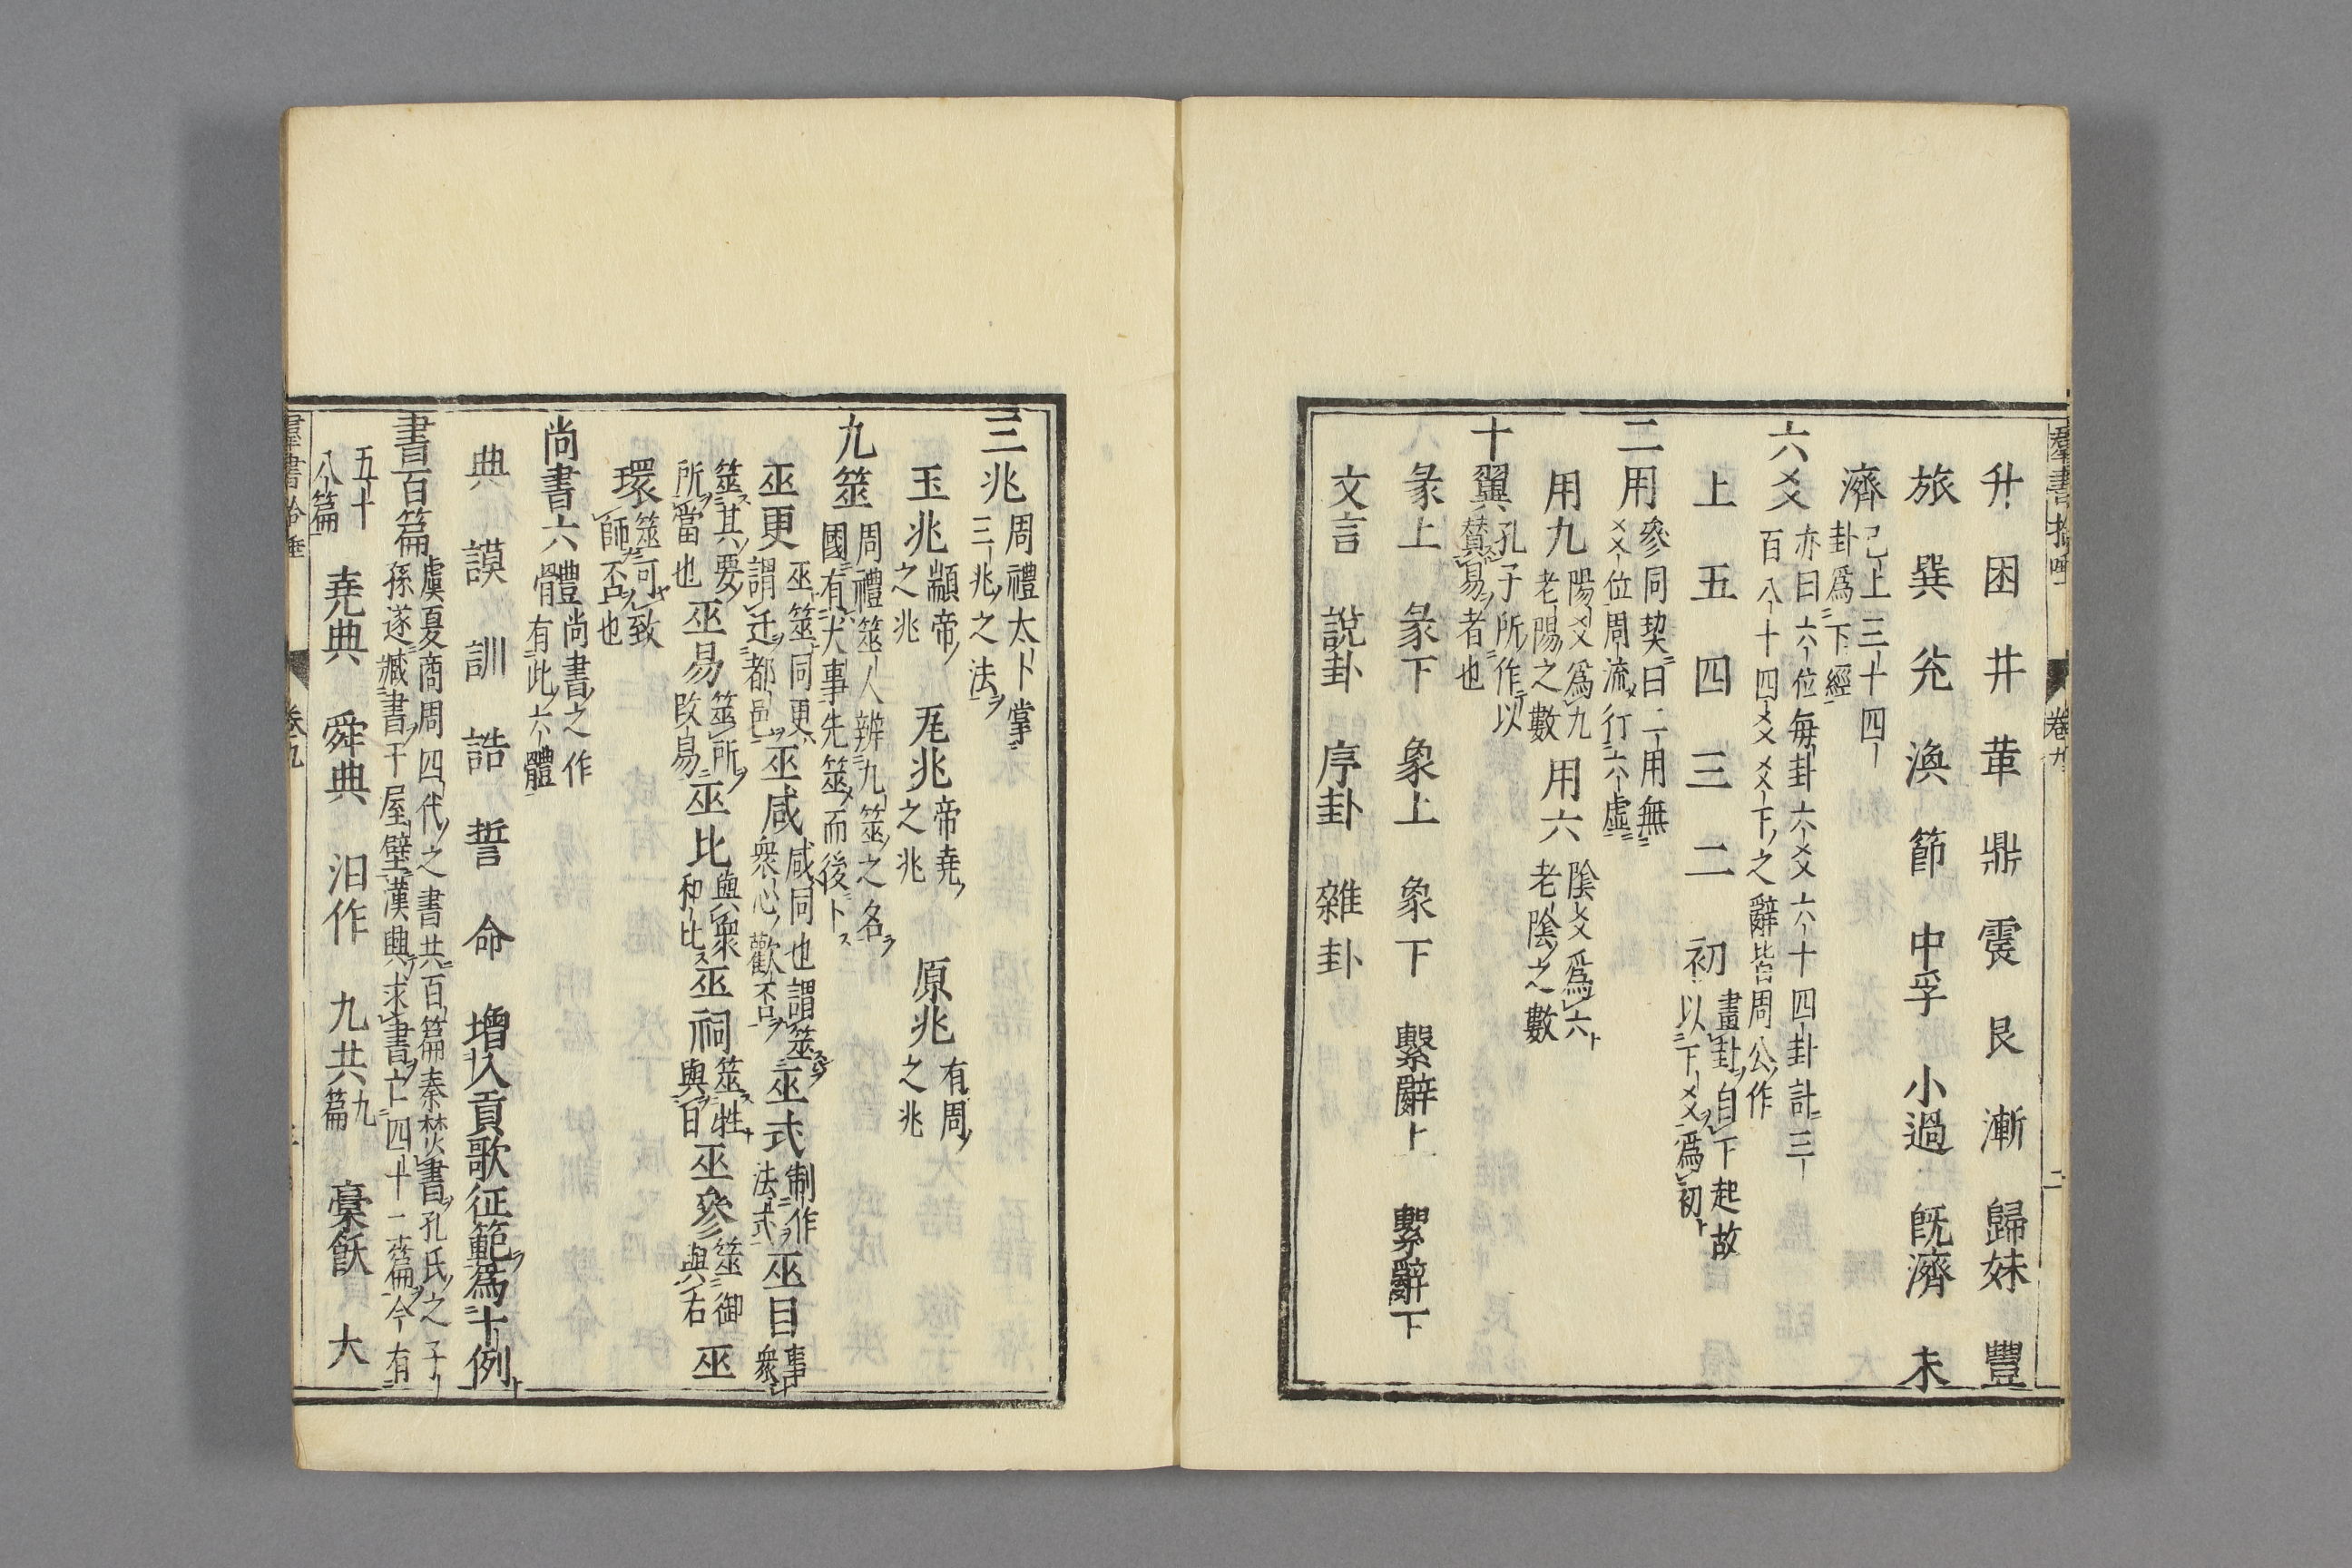 升　困　井　革　鼎　震　艮　漸　歸妹　豐
旅　巽　兊　渙　節　中孚　小過　旣濟　未
濟
已上三十四
卦爲下經
六爻
亦曰六位每卦六爻六十四卦計三
百八十四爻爻下之辭皆周公作
上　五　四　三　二　初
畫卦自下起故
以下爻爲初
二用
參同契曰二用無
爻位周流行六虛
用九
陽爻爲九
老陽之數
用六
陰爻爲六
老陰之數
十翼
孔子所作以
賛易者也
彖上　彖下　象上　象下　繫辭上　繫辭下
文言　說卦　序卦　雜卦
卷九
二
三兆
周禮太卜掌
三兆之法
玉兆
顓帝
之兆
兆
帝堯
之兆
原兆
有周
之兆
九筮
周禮筮人辨九筮之名
國有大事先筮而後卜
巫更
巫筮同更
謂迁都邑
巫咸
咸同也謂筮
衆心歡否
巫式
制作
法式
巫目
事衆
筮其要
所當也
巫易
筮所
改易
巫比
與衆
和比
巫祠
筮牲
與日
巫參
筮御
與右
巫
環
筮可致
師否也
尚書六體
尚書之作
有此六體
典　謨　訓　誥　誓　命　增以貢歌征範爲十例
書百篇
虞夏商周四代之書共百篇秦焚書孔氏之子
孫遂臧書于屋壁漢興求書亡四十二篇今有
五十
八篇
堯典　舜典　汨作　九共
九
篇
槀飫　大
羣書拾唾
卷九